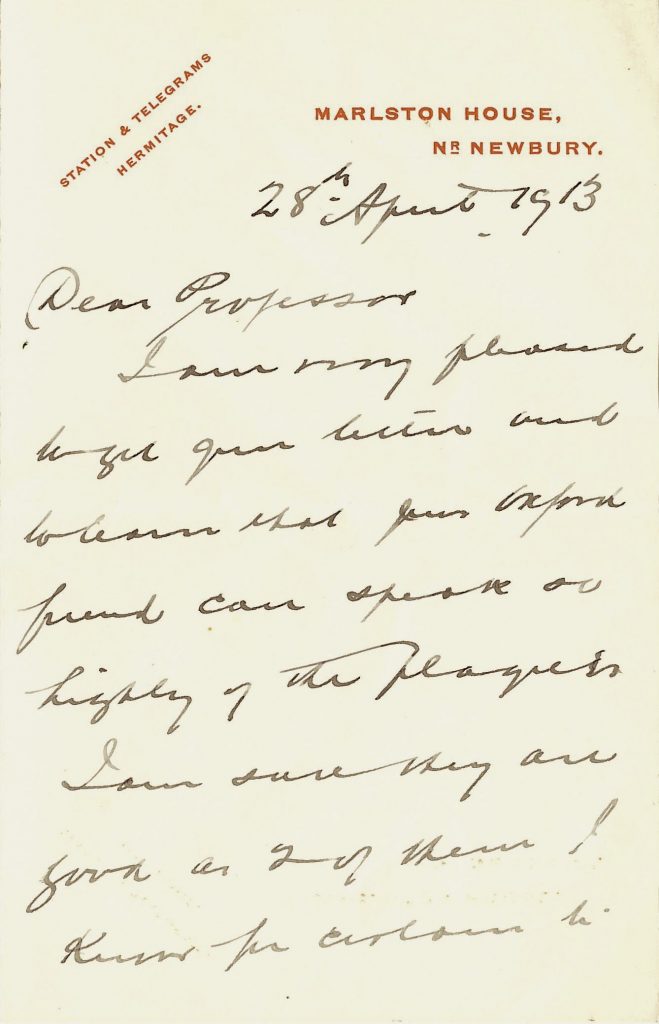 STATION & TELEGRAMS
HERMITAGE.
MARLSTON HOUSE,
NR NEWBURY.
28th April 1913
Dear Professor
I am very pleased
to get your letter and
to learn that your Oxford
friend can speak so
highly of the
I am sure they are
good as 2 of them I
Know for certain to